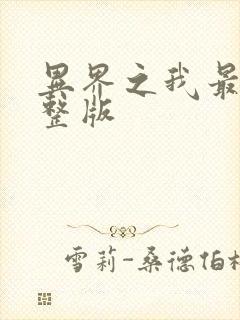 异界之我最
整版
雪莉-桑德伯格